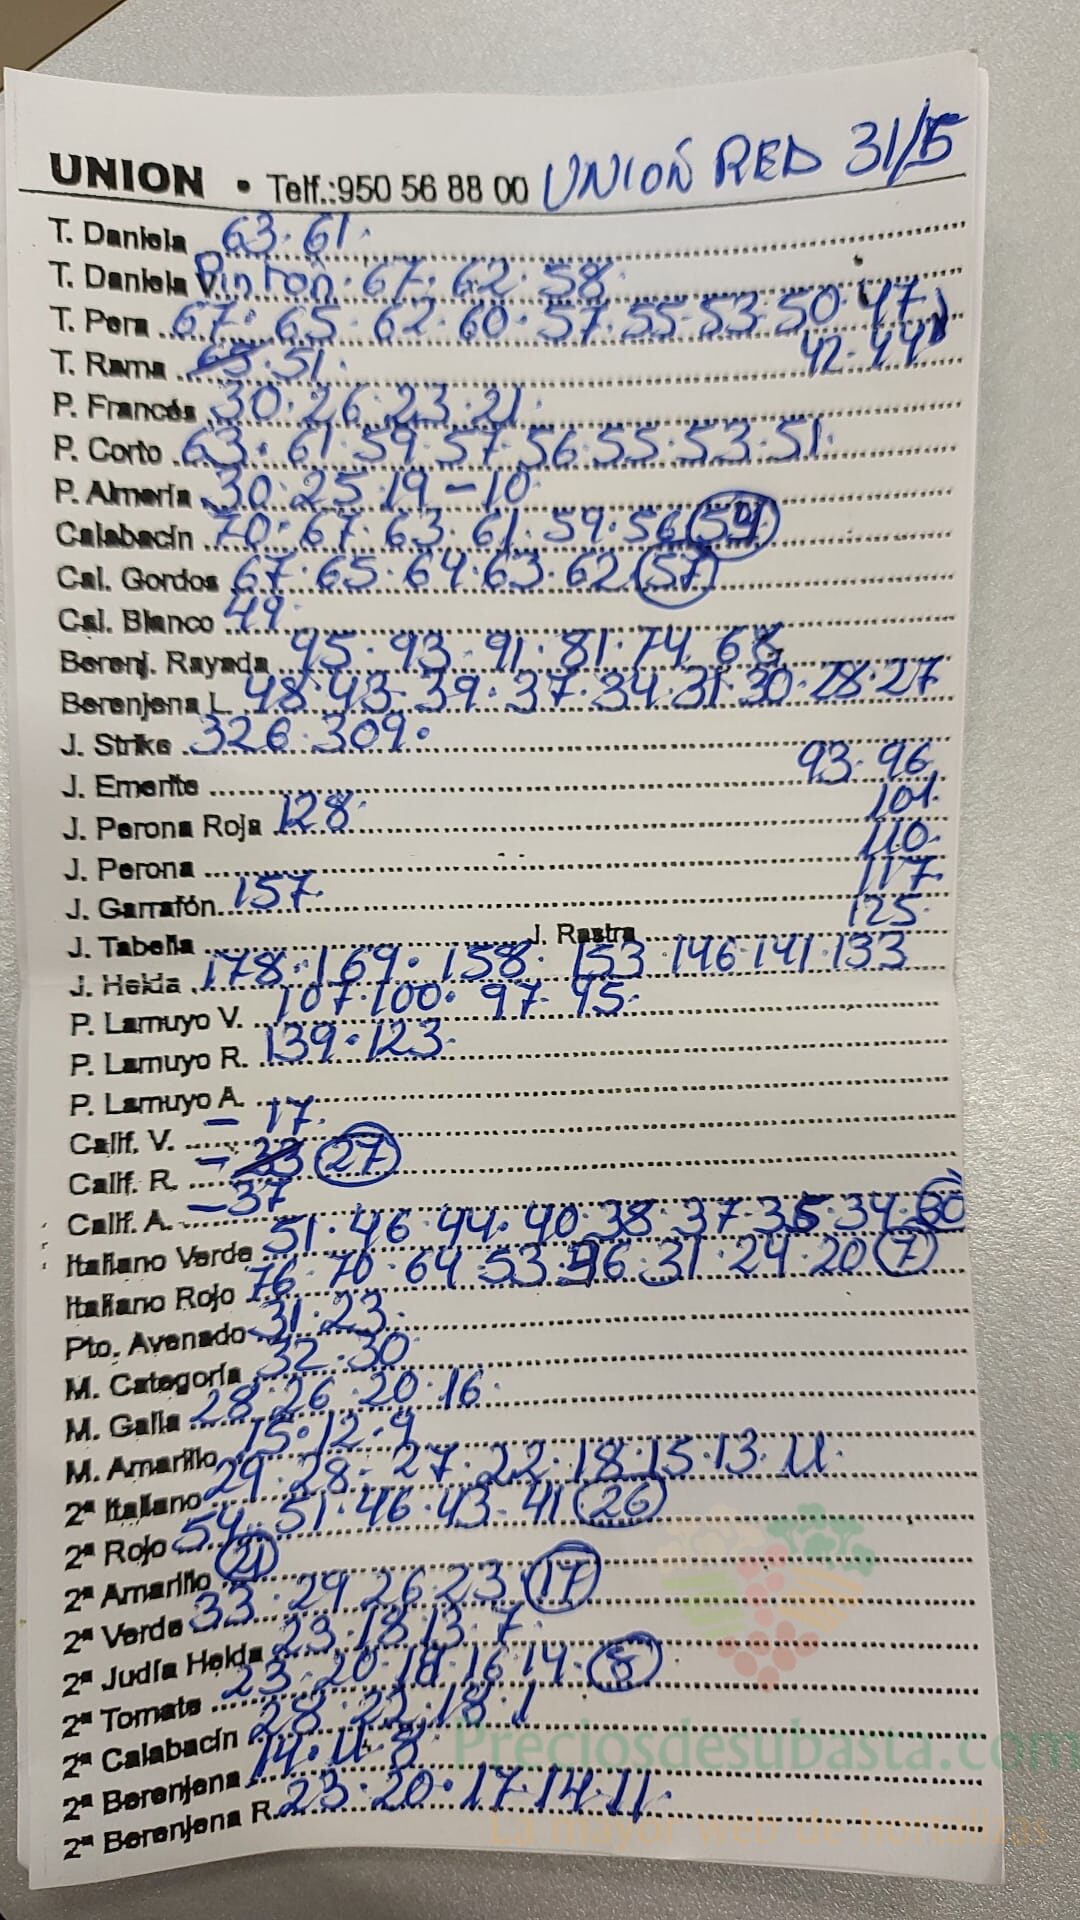 UNION • Telf.:950 56 88 00 UNION RED 31/5
T. Daniela 63·61·
T. Daniela V. Pinton·67·62·58
T. Pera 67·65·62·60·57·55·53·50·47
42·44
T. Rama 65·51·
P. Francés 30·26·23·21·
P. Corto 63·61·59·57·56·55·53·51·
P. Almería 30·25·19-10
Calabacín 70·67·63·61·59·56 54
Cal. Gordos 67·65·64·63·62 57
Cal. Blanco 49
Berenj. Rayada 95·93·91·81·74·68
Berenjena L. 48·43·39·37·34·31·30·28·27
J. Strike 326·309·
J. Emerite 93·96
101·
J. Perona Roja 128·
110·
J. Perona
117·
J. Garrafón 157·
125·
J. Tabella J. Rastra
J. Helda 178·169·158·153·146·141·133
P. Lamuyo V. 107·100·97·95·
P. Lamuyo R. 139·123·
P. Lamuyo A.
Calif. V. - 17·
Calif. R. - 27
Calif. A. -37
Italiano Verde 51·46·44·40·38·37·35·34·30
Italiano Rojo 76·70·64·53 31·24·20 7
Pto. Avenado 31·23·
M. Categoría 32·30
M. Galia 28·26·20·16·
M. Amarillo 15·12·9
2ª Italiano 29·28·27·22·18·15·13·11·
2ª Rojo 54·51·46·43·41 26
2ª Amarillo 21
2ª Verde 33·29·26·23·17
2ª Judía Helda 23·18·13·7·
2ª Tomate 23·20·18·16·14·8
2ª Calabacín 28·22·18·1
2ª Berenjena 14·11·8
2ª Berenjena R. 23·20·17·14·11·
Preciosdesubasta.com
La mayor web de hortalizas